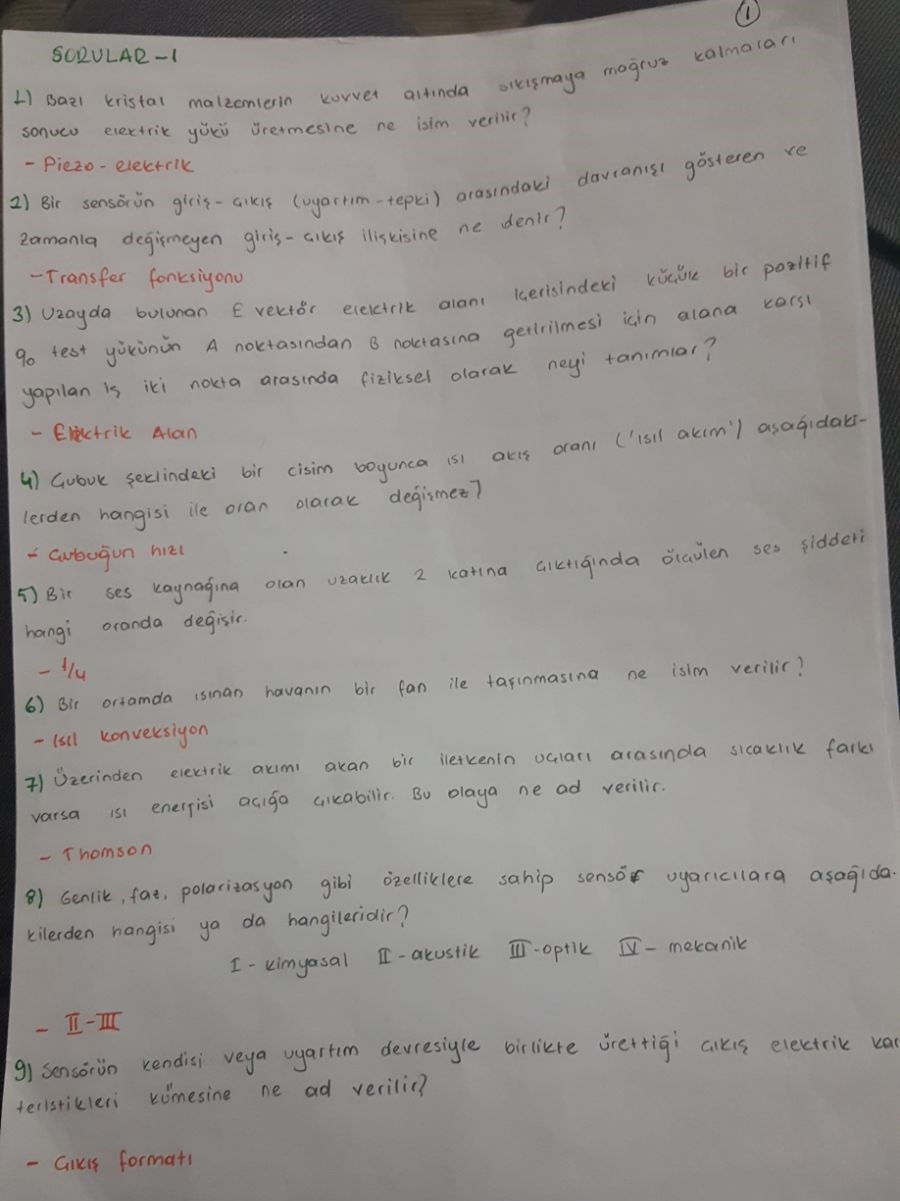 1
SORULAR-1
1) Bazı kristal malzemlerin kuvvet altında sıkışmaya mağruz kalmaları
sonucu elektrik yükü üretmesine ne isim verilir?
- Piezo-elektrik
2) Bir sensörün giriş-çıkış (uyartım-tepki) arasındaki davranışı gösteren ve
zamanla değişmeyen giriş-çıkış ilişkisine ne denir?
-Transfer fonksiyonu
3) Uzayda bulunan E vektör elektrik alanı içerisindeki küçük bir pozitif
q₀ test yükünün A noktasından B noktasına getirilmesi için alana karşı
yapılan iş iki nokta arasında fiziksel olarak neyi tanımlar?
- Elektrik Alan
4) Çubuk şeklindeki bir cisim boyunca ısı akış oranı ('ısıl akım') aşağıdaki-
lerden hangisi ile oran olarak değişmez?
- Çubuğun hızı
5) Bir ses kaynağına olan uzaklık 2 katına çıktığında ölçülen ses şiddeti
hangi oranda değişir.
- 1/4
6) Bir ortamda ısınan havanın bir fan ile taşınmasına ne isim verilir?
- Isıl konveksiyon
7) Üzerinden elektrik akımı akan bir iletkenin uçları arasında sıcaklık farkı
varsa ısı enerjisi açığa çıkabilir. Bu olaya ne ad verilir.
- Thomson
8) Genlik, faz, polarizasyon gibi özelliklere sahip sensör uyarıcılara aşağıda-
kilerden hangisi ya da hangileridir?
I - kimyasal II - akustik III - optik IV - mekanik
- II-III
9) Sensörün kendisi veya uyartım devresiyle birlikte ürettiği çıkış elektrik kar
teristikleri kümesine ne ad verilir?
- Çıkış formatı